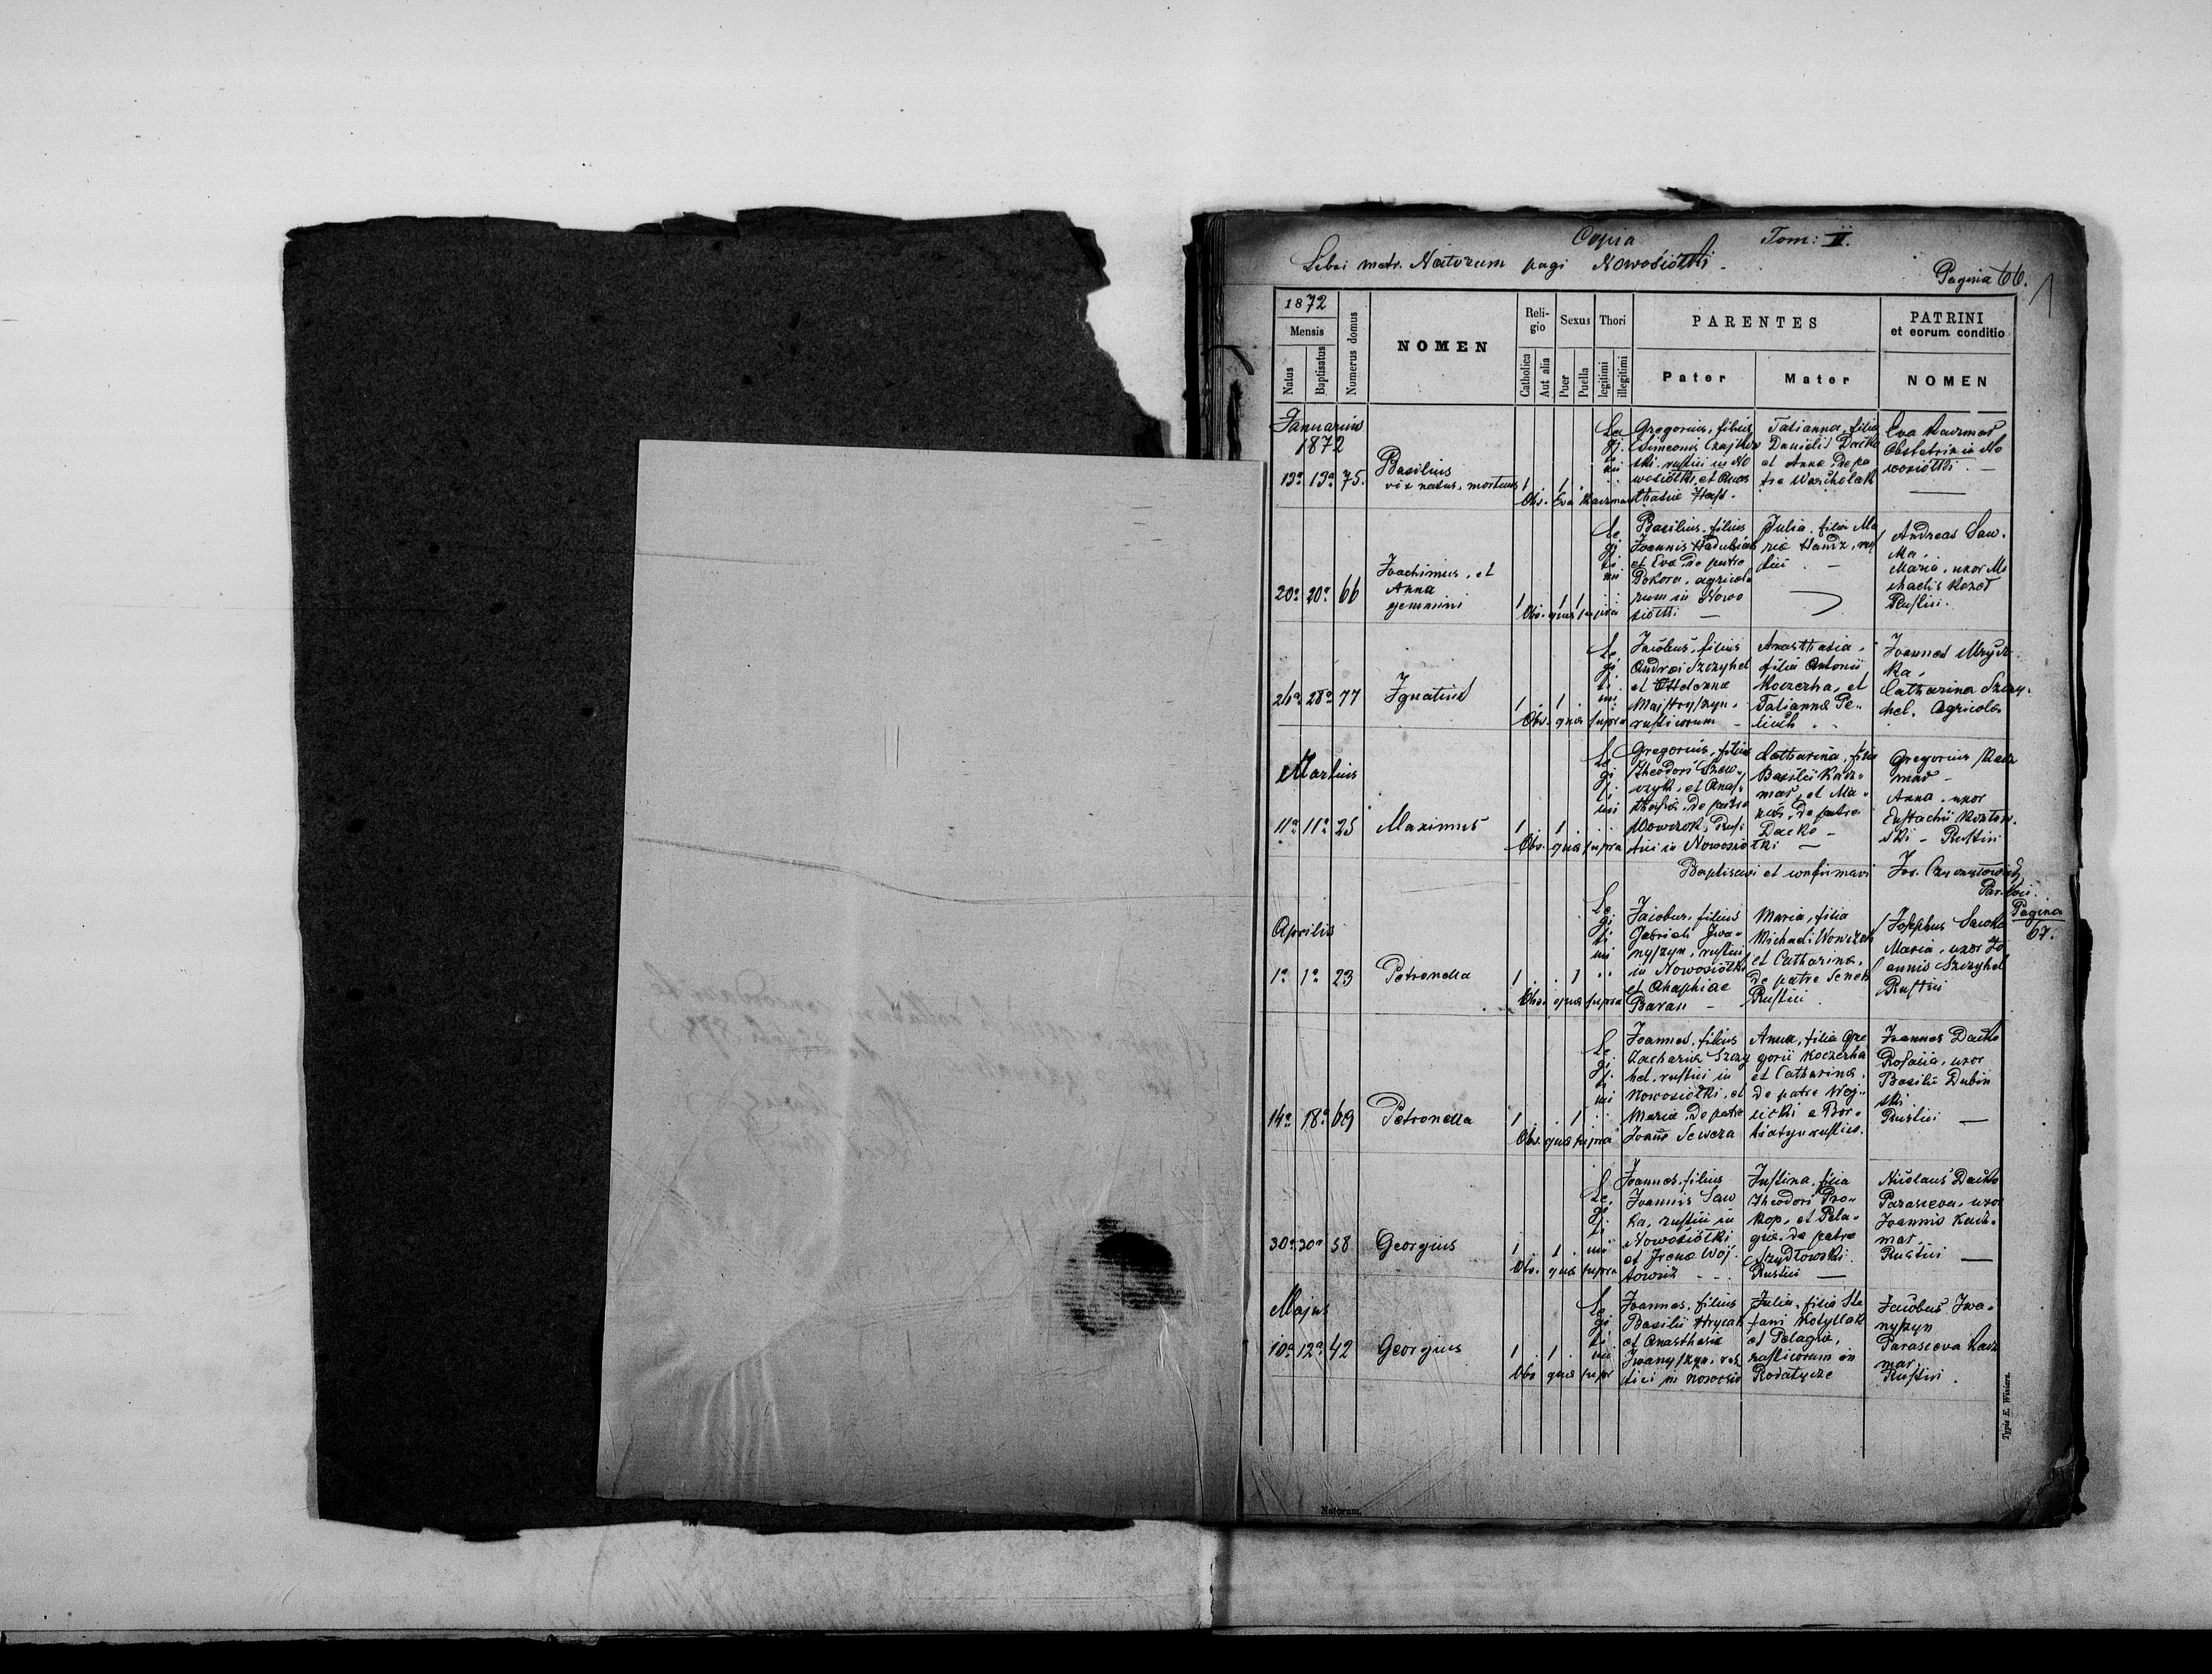 Copia Tom: II.
Libri metr. Natorum pagi Nowosiółki.
Pagina 66.
1872
Mensis
Natus
Baptisatus
Numerus domus
NOMEN
Reli-
gio
Catholica
Aut alia
Sexus
Puer
Puella
Thori
legitimi
illegitimi
PARENTES
Pater
Mater
PATRINI
et eorum conditio
NOMEN
Januarius
1872
13a 13a 75.
Basilius
vix natus, mortuus
1 . 1 .
Obs. Eva Kaczmar
Le
gi.
ti
mi
Gregorius, filius
Simeonis Czajkow
ski rustici in No
wosiółki, et Anas
thasiae
Tatianna, filia
Danielis Daćko
et Anna, de pa
tre Warcholak
Eva Kaczmar
Obstetrix in No
wosiółki. —
20a 20a 66
Joachimus, et
Anna
gemmini
1 . 1 1
Obs. quae supra
Le
gi
ti
mi
Basilius, filius
Joannis
et Eva, de patre
Pokora, agricola
rum in Nowo
siółki —
Julia, filia Ma
riae
Andreas Saw.
ka.
Maria, uxor Mi
chaelis
Rustici.
26a 28a 77
Ignatius
1 . 1 .
Obs. quae supra
Le
gi.
ti.
mi.
Jacobus, filius
Andrei Szczyhel
et Helenna
rusticorum —
Anasthasia,
filia Antonii
Koczerha, et
Tatianna Pe-
Joannes
ka,
Catharina Szczy-
hel. Agricolae
Martius
11a 11a 25
Maximus
1 . 1 .
Obs. quae supra
Le
gi
ti
mi
Gregorius, filius
Theodori Szew-
czyk, et Anas-
thasia, de patre
Wowczok, Rus-
tici in Nowosiółki
Catharina, filia
Basilii Kacz-
mar, et Ma-
ria, de patre
Dacko —
Gregorius Kacz
mar —
Anna, uxor
Eustachii Kozłow-
ski — Rustici
Baptisavi et confirmavi
Par. loci.
Pagina
67.
Aprilis
1a 1a 23
Petronella
1 . . 1
Obs. quae supra
Le
gi
ti
mi
Jacobus, filius
Gabrieli Iwa-
nyszyn, rustici
in Nowosiółki
et Ahaphiae
Baran —
Maria, filia
Michaeli Wowczok
et Catharina,
de patre Senek
Rustici.
Josephus Sawka
Maria, uxor Jo
annis Szczyhel
Rustici
14a 18a 69
Petronella
1 . . 1
Obs. quae supra
Le
gi.
ti
mi
Joannes, filius
Zachariae Szczy
hel, rustici in
Nowosiółki, et
Maria, de patre
Anna, filia Gre
gorii Koczerha
et Catharina,
de patre Woj-
cicki e Bor-
tiatyn rustico.
Joannes Daćko
Rosalia, uxor
Basilii Dubin
ski
Rustici —
30a 30a 58
Georgius
1 . 1 .
Obs. quae supra
Le,
gi.
ti
mi
Joannes, filius
Joannis Saw
ka, rustici in
Nowosiółki
et Irena Woj-
towicz - - -
Justina, filia
Theodori Pro-
kop, et Pela-
gia, de patre
Szydłowski
Rustici —
Nicolaus Daćko
Parasceva, uxor
Joannis Kacz-
mar,
Rustici —
Majus
10a 12a 42
Georgius
1 . 1 .
Obs quae supr
Le
gi
ti
mi
Joannes, filius
Basilii Hrycak
et Anasthasia
Iwanyszyn, rus
tici in Nowosió
Julia, filia Ste
fani Kotyllak
et Pelagia,
rusticorum in
Rodatycze
Jacobus Iwa-
nyszyn
Parasceva Kacz
mar,
Rustici.
Typis E. Winiarz.
Natorum.